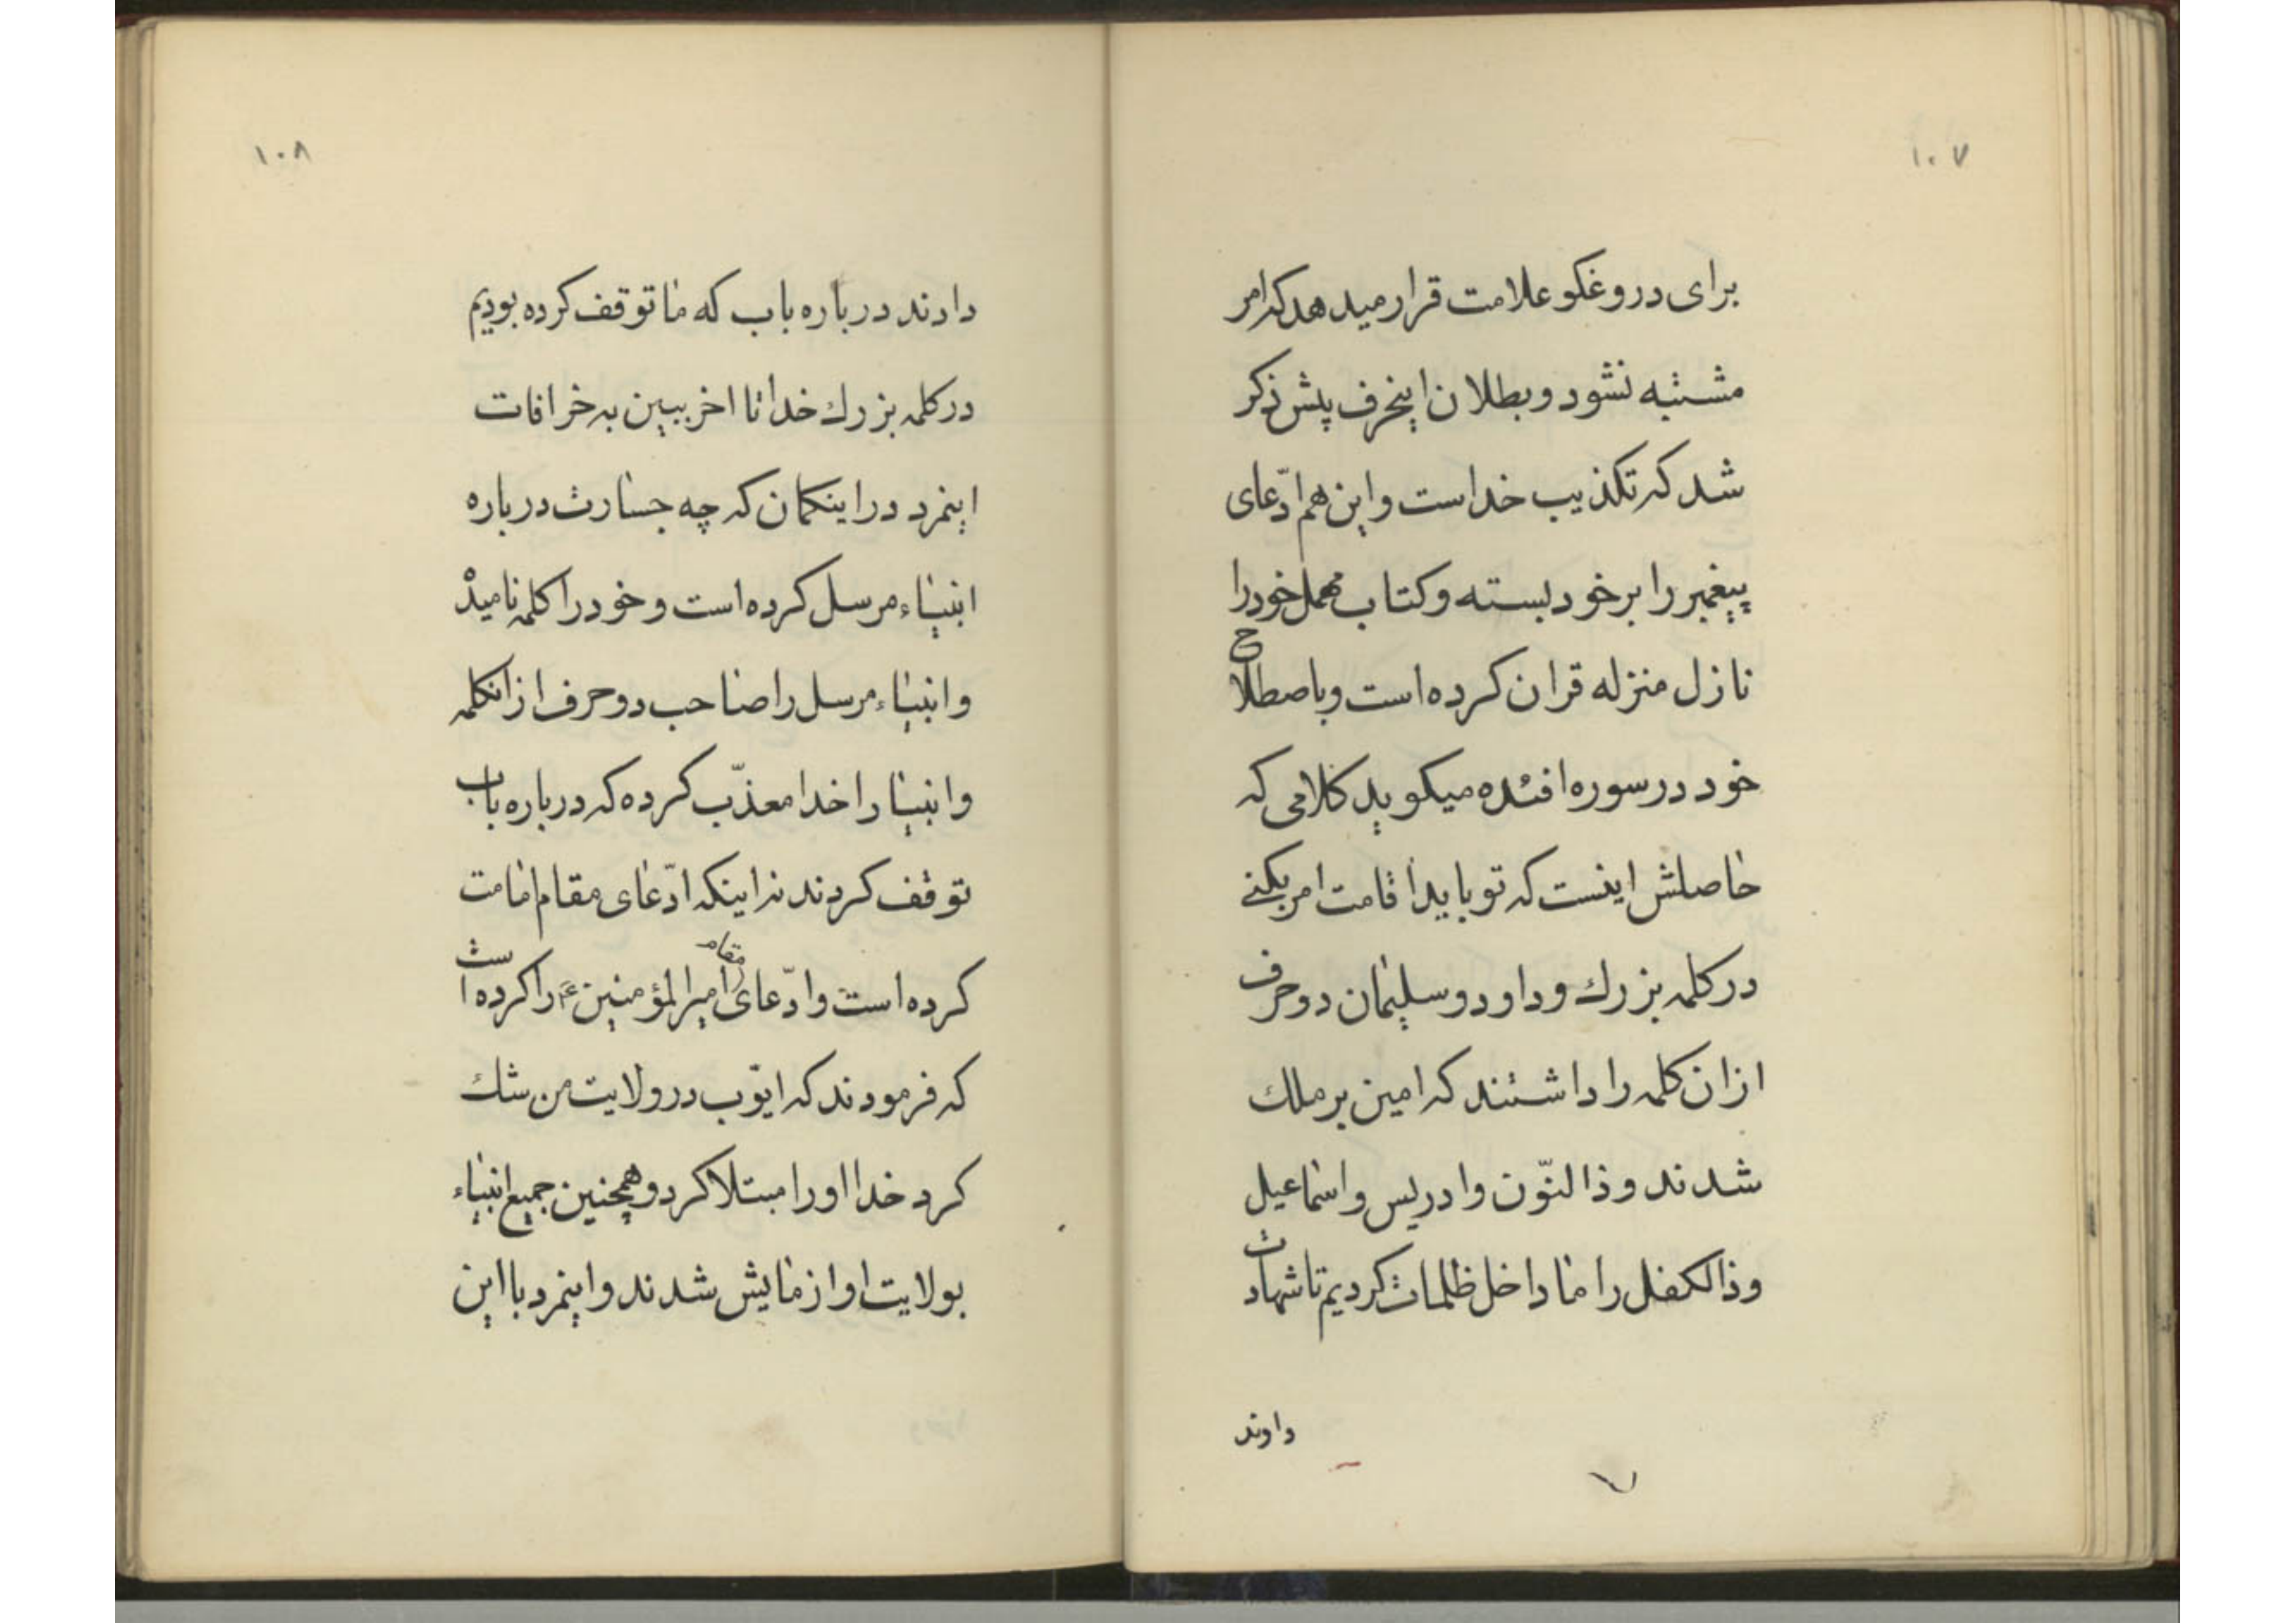 ۱۰۷
برای دروغکو علامت قرار میدهد که امر
مشتبه نشود و بطلان اینحرف پیش ذکر
شد که تکذیب خداست و این هم ادّعای
پیغمبر را بر خود بسته و کتاب مهمل خود را
نازل منزله قران کرده است و باصطلاح
خود در سوره افئده میکوید کلامی که
حاصلش اینست که تو باید اقامت امر بکنے
در کلمه بزرك و داود و سلیمان دو حرف
از ان کلمه را داشتند که امین بر ملك
شدند و ذا لنّون و ادریس و اسماعیل
و ذالکفل را ما داخل ظلمات کردیم تا شهادت
داوند
۱۰۸
دادند درباره باب که ما توقف کرده بودیم
در کلمه بزرك خدا تا اخر ببین به خرافات
اینمرد در اینکمان که چه جسارت درباره
انبیاء مرسل کرده است و خود را کلمه نامید
و انبیاء مرسل را صاحب دو حرف از انکلمه
و انبیا را خدا معذّب کرده که درباره باب
توقف کردند نه اینکه ادّعای مقام امامت
کرده است و ادّعای مقام امیر المؤمنین ع را کرده است
که فرمودند که ایّوب در ولایت من شك
کرد خدا او را مبتلا کرد و همچنین جمیع انبیاء
بولایت او ازمایش شدند و اینمرد با این